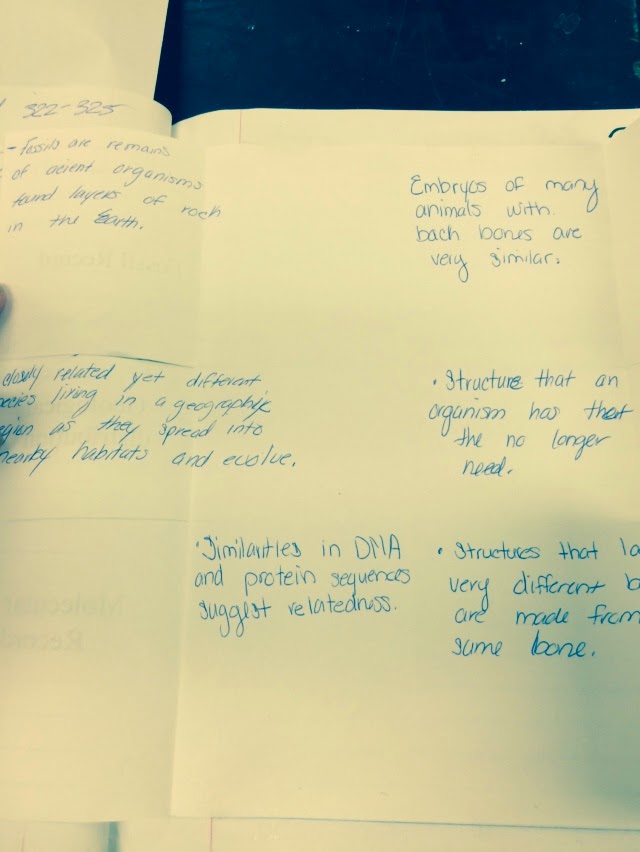 322-325
- Fossils are remains
of acient organisms
found layers of rock
in the Earth.
Embryos of many
animals with
back bones are
very similar.
closely related yet different
species living in a geographic
region as they spread into
nearby habitats and evolve.
• Structure that an
organism has that
the no longer
need.
• Similarities in DNA
and protein sequences
suggest relatedness.
• Structures that
very different
are made from
same bone.
Fossil Record
Molecular
Record